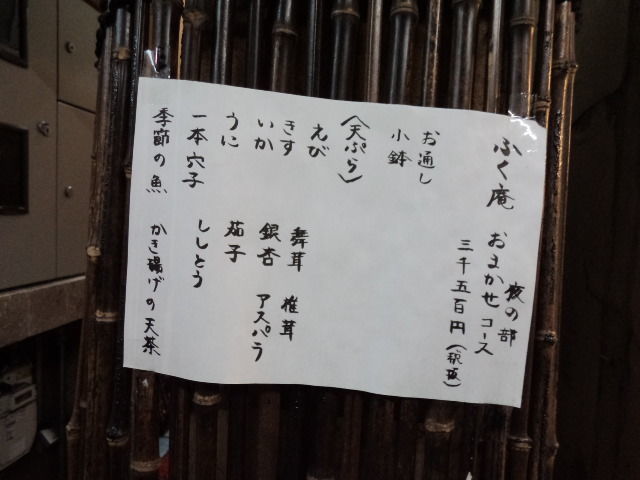 夜の部
ふく庵 おまかせコース
三千五百円(税抜)
お通し
小鉢
(天ぷら)
えび
きす 舞茸 椎茸
いか 銀杏 アスパラ
うに 茄子
一本穴子 ししとう
季節の魚 かき揚げの天茶